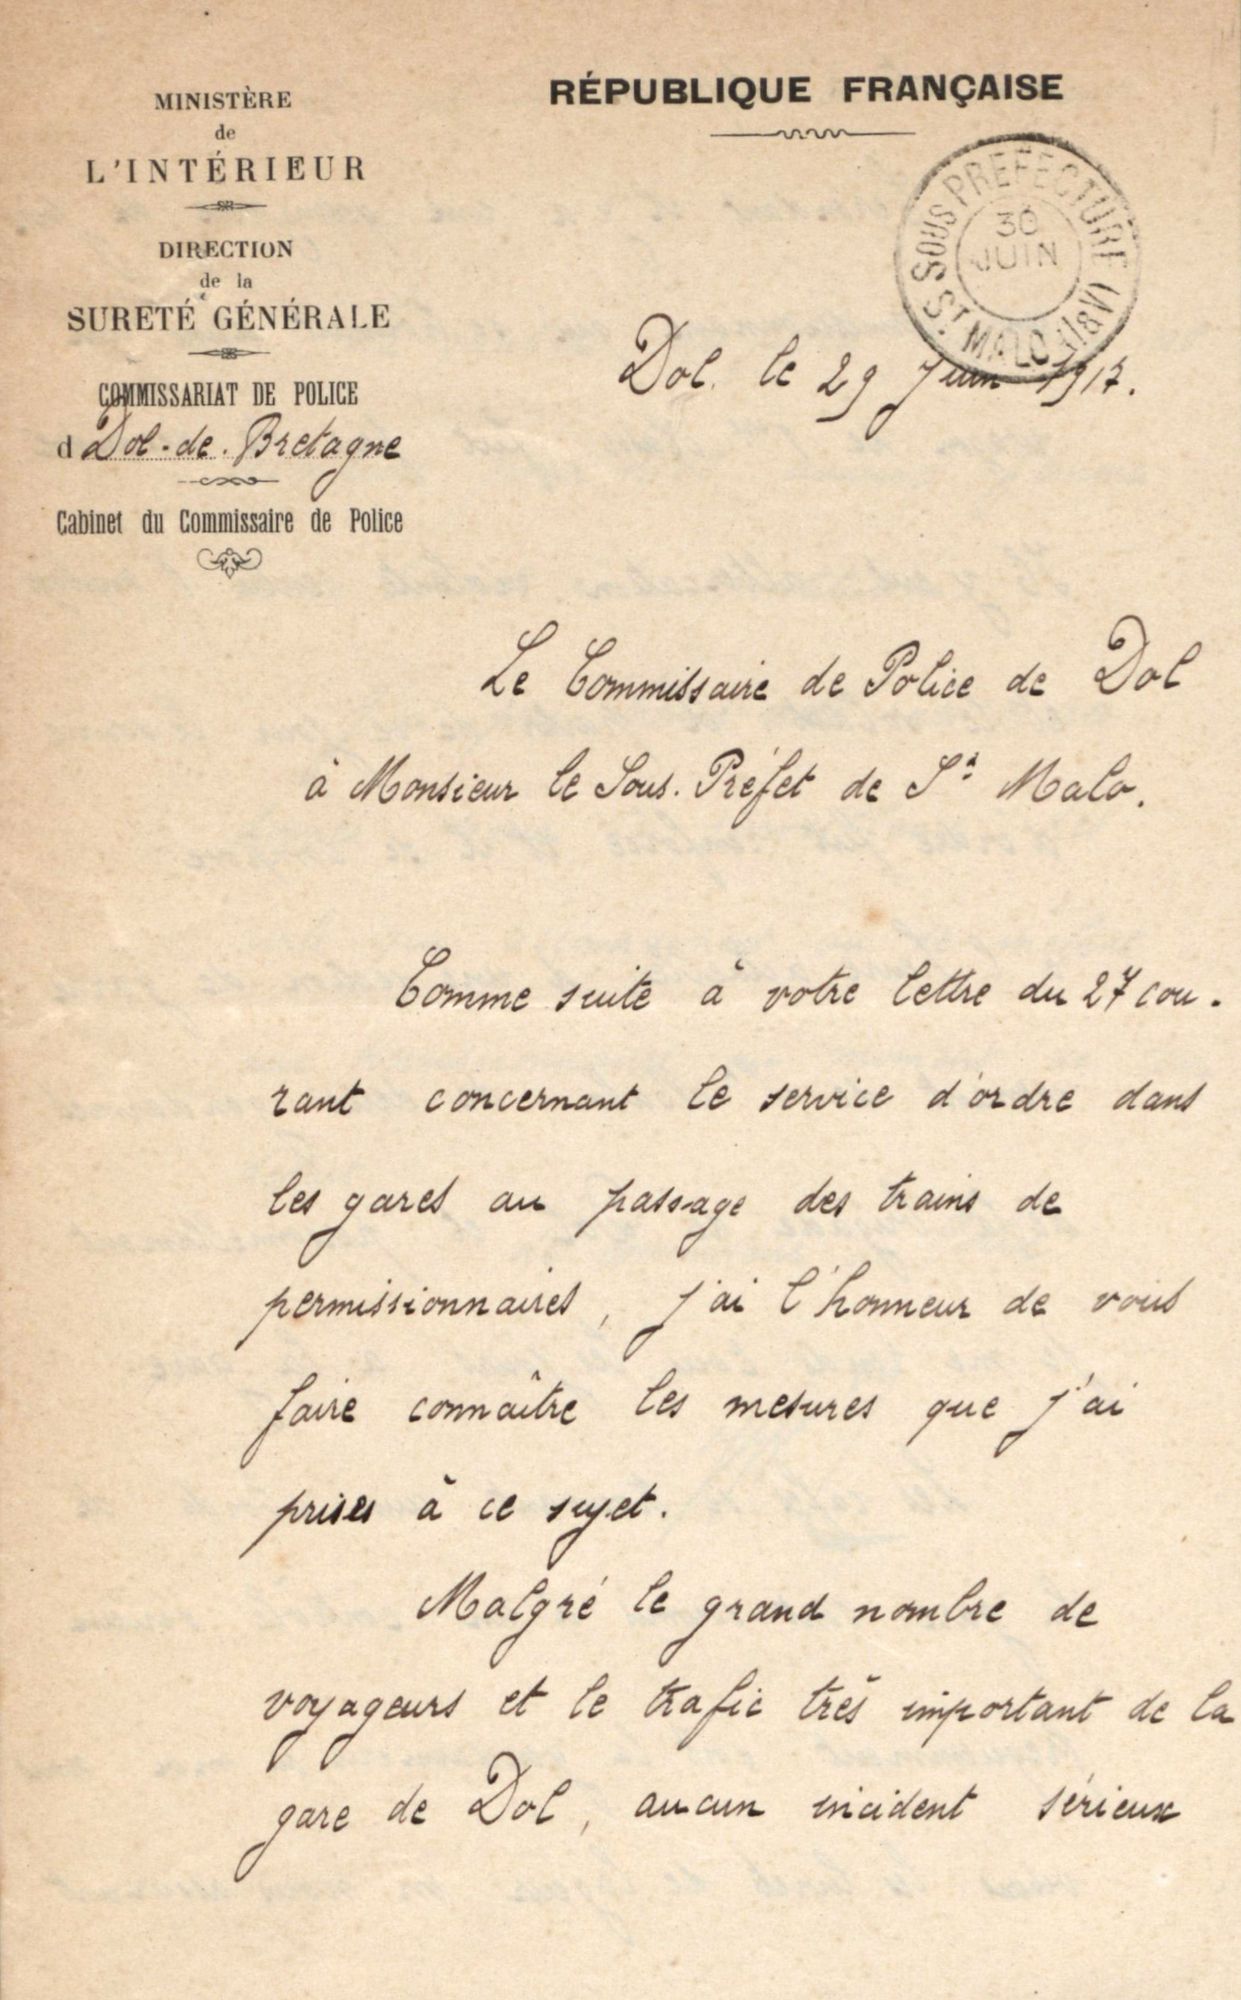 MINISTÈRE
de
L'INTÉRIEUR
DIRECTION
de la
SURETÉ GÉNÉRALE
COMMISSARIAT DE POLICE
d Dol-de-Bretagne
Cabinet du Commissaire de Police
RÉPUBLIQUE FRANÇAISE
SOUS PREFECTURE
30
JUIN
ST. MALO (I&V)
Dol. le 29 Juin 1917.
Le Commissaire de Police de Dol
à Monsieur le Sous-Préfet de St Malo.
Comme suite à votre lettre du 27 cou-
rant concernant le service d'ordre dans
les gares au passage des trains de
permissionnaires, j'ai l'honneur de vous
faire connaître les mesures que j'ai
prises à ce sujet.
Malgré le grand nombre de
voyageurs et le trafic très important de la
gare de Dol, aucun incident sérieux